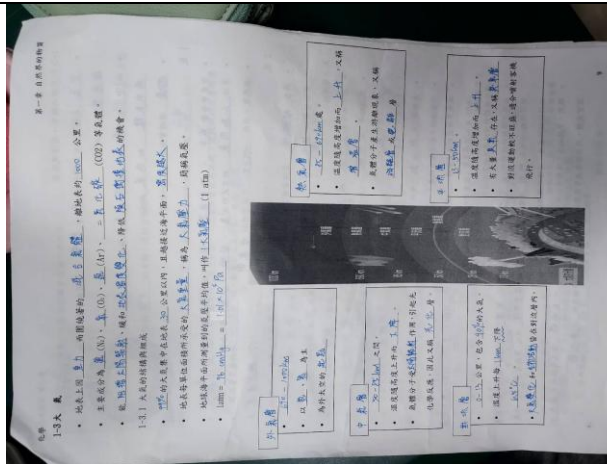 化學
第一章 自然界的物質
1-3 大 氣
• 地表上因 重力 而圍繞著的 混合氣體 ，離地表約 1000 公里。
• 主要成分為 氮 (N₂)、氧 (O₂)、氬 (Ar)、二氧化碳 (CO2) 等氣體。
• 能 吸 太陽輻射、緩和 地表溫度變化、降低 隕石衝撞地表 的機會。
1-3.1 大氣的結構與組成
• 99% 的大氣集中在地表 30 公里以內，且越接近海平面，密度越大。
• 地表每單位面積所承受的 大氣重量，稱為 大氣壓力，簡稱氣壓。
• 地球海平面所測量到的氣壓平均值，叫作 1大氣壓 (1 atm)
• 1atm = 76 cmHg = 1.01×10⁵ Pa
外氣層
• 以 氫、氦 為主
為外太空的
中氣層
• 50-85km 之間。
• 溫度隨高度上升而 下降。
• 氣體分子受 作用，引起光
化學反應，因此又稱 光化 層。
對流層
• 公里，包含 的大氣。
• 溫度上升每 1km 下降
6.5°C。
• 大氣變化 和 皆在對流層內。
熱氣層
• 處。
• 溫度隨高度增加而 上升，又稱
增溫層
• 氣體分子產生游離現象，又稱
游離層 或 電離 層
平流層
• 溫度隨高度增加而 上升。
• 有大量 臭氧 存在，又稱 臭氧層
• 對流運動較不旺盛，適合噴射客機
飛行。
9